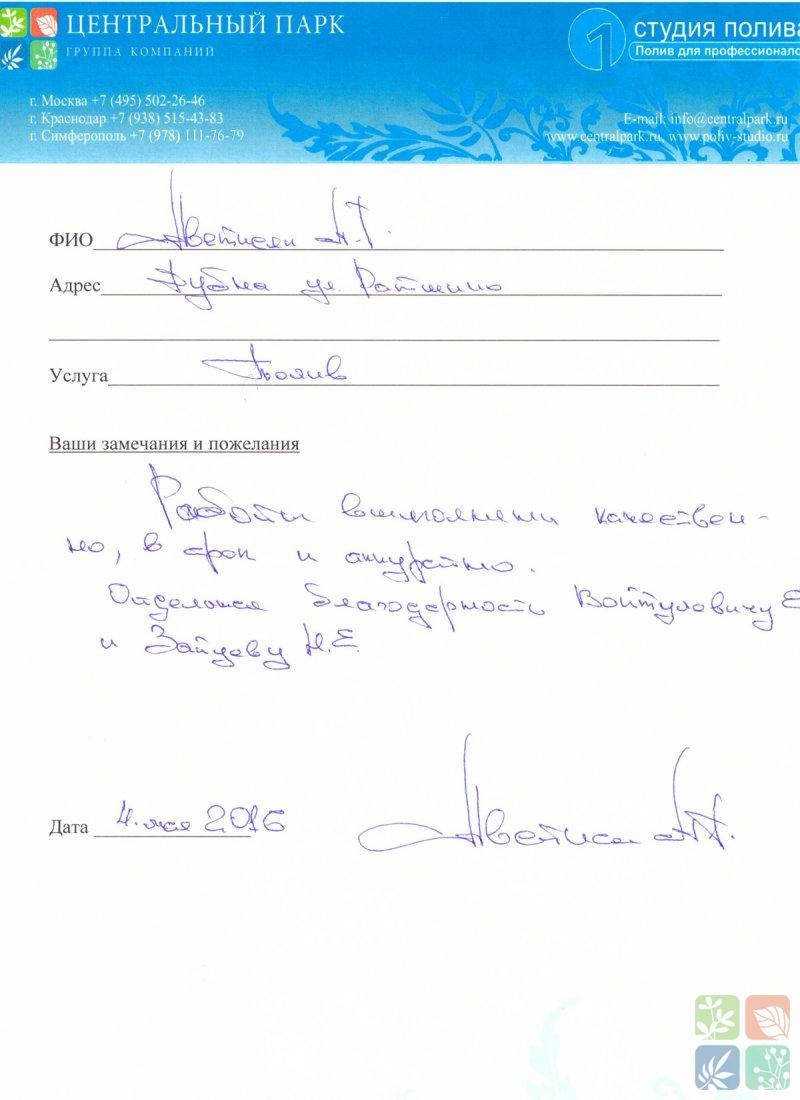 ЦЕНТРАЛЬНЫЙ ПАРК
ГРУППА КОМПАНИЙ
1 СТУДИЯ ПОЛИВА
Полив для профессионало
г. Москва +7 (495) 502-26-46
г. Краснодар +7 (938) 515-43-83
г. Симферополь +7 (978) 111-76-79
E-mail: info@centralpark.ru
www.centralpark.ru, www.poliv-studio.ru
ФИО Аветисян А.Г.
Адрес Дубна ул. Ратмино
Услуга Полив
Ваши замечания и пожелания
Работы выполнены качествен-
но, в срок и аккуратно.
Отдельная благодарность Войтуловичу Е
и Зайцеву Н.Е.
Дата 4. мая 2016